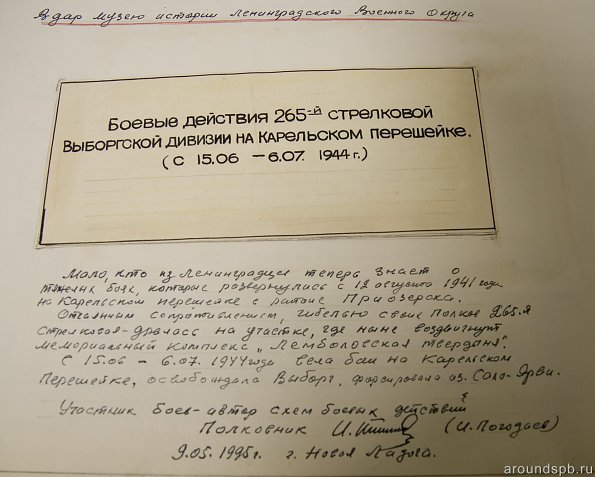 В дар музею истории Ленинградского Военного Округа
Боевые действия 265-й стрелковой
Выборгской дивизии на Карельском перешейке.
(с 15.06 – 6.07. 1944 г.)
Мало, кто из Ленинградцев теперь знает о
тяжелых боях, которые развернулись с 12 августа 1941 года
на Карельском перешейке с района Приозерска.
Отчаянным сопротивлением, гибелью своих полков 265-я
стрелковая – дралась на участке, где ныне воздвигнут
мемориальный комплекс „Лемболовская твердыня".
С 15.06 – 6.07. 1944 года вела бои на Карельском
Перешейке, освобождала Выборг, форсировала оз. Сало-Ярви.
Участник боев – автор схем боевых действий
Полковник И. (И. Погодаев)
9.05. 1995 г. г. Новая Ладога.
aroundspb.ru